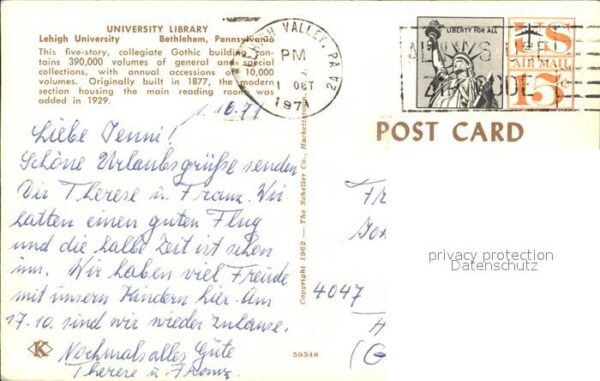 UNIVERSITY LIBRARY
Lehigh University Bethlehem, Pennsylvania
This five-story, collegiate Gothic building con-
tains 390,000 volumes of general and special
collections, with annual accessions of 10,000
volumes. Originally built in 1877, the modern
section housing the main reading room was
added in 1929.
LEHIGH VALLEY, PA
PM
1 OCT
1971
24
LIBERTY FOR ALL
US
AIR MAIL
15c
ALWAYS USE
ZIP CODE
POST CARD
1.10.71
Liebe Jenni!
Schöne Urlaubsgrüße senden
Dir Therese u. Franz. Wir
hatten einen guten Flug
und die halbe Zeit ist schon
um. Wir haben viel Freude
mit unsern Kindern hier. Am
17.10. sind wir wieder zuhause.
Nochmals alles Gute
Therese u. Franz
K
Copyright 1962 — The Scheller Co., Hackettstown
59348
Fr
4047
(G
privacy protection
Datenschutz